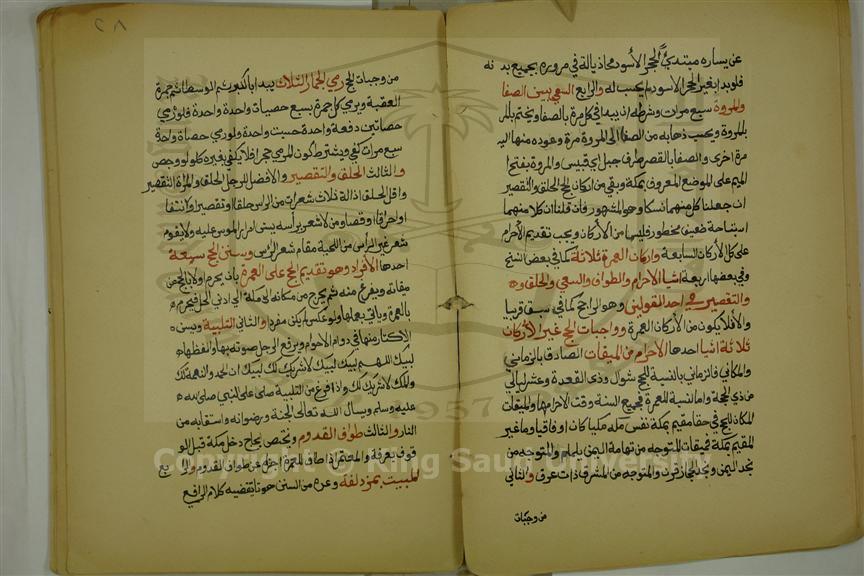 عن يساره مبتدئ الحجر الأسود محاذيا له في مروره بجميع بدنه
فلو بدا بغير الحجر الاسود لم يحسب له والرابع السعي بين الصفا
والمروة سبع مرات وشرطه ان يبدا في كل مرة بالصفا ويختم
بالمروة ويحسب ذهابه من الصفا الى المروة مرة وعوده منها اليه
مرة اخرى والصفا بالقصر طرف جبل ابي قبيس والمروة بفتح
الميم على الموضع المعروف بمكة وبقي من اركان الحج الحلق والتقصير
ان جعلنا كل منهما نسكا وهو المشهور فان قلنا ان كلا منهما
استباحة محظور فليسا من الاركان ويجب تقديم الاحرام
على كل الأركان السابعة واركان العمرة ثلاثة كما في بعض النسخ
وفي بعضها اربعة اشيا الاحرام والطواف والسعي والحلق و
والتقصير في احد القولين وهو الراجح كما سبق قريبا
والا فلا يكون من الأركان العمرة وواجبات الحج غير الاركان
ثلاثة اشيا احدها الاحرام من الميقات الصادق بالزماني
والمكاني فالزماني بالنسبة للحج شوال وذي القعدة وعشر ليالي
من ذي الحجة واما بالنسبة للعمرة فجميع السنة وقت لاحرامها والميقات
المكان للحج في حق المقيم بمكة نفس مكة مكيا كان او فاقيا وما غير
المقيم بمكة فميقات المتوجه من تهامة اليمن يلملم والمتوجه من
نجد اليمن ونجد الحجاز قرن والمتوجه من المشرق ذات عرق والثاني
من وجبات
٢٨
من وجبات الحج رمي الجمار الثلاث يبدا بالكبرى ثم الوسطا ثم جمرة
العقبة ويرمي كل جمرة بسبع حصيات واحدة واحدة فلو رمي
حصاتين دفعة واحدة حسبت واحدة ولو رمي حصاة واحدة
سبع مرات كفي ويشترط كون المرمي حجر فلا يكفي غيره كلولو وجص
والثالث الحلق والتقصير والافضل للرجل الحلق وللمراة التقصير
واقل الحلق ازالة ثلاث شعرات من الراس حلقا او تقصيرا او نتفا
او احراقا او قصا ومن لا شعر براسه يسن امرار الموس عليه ولا يقوم
شعر غير الراس من اللحية مقام شعر الرس وسنن الحج سبعة
احدها الأفراد وهو تقديم الحج على العمرة بان يحرم ولا بالحج من
ميقاته ويفرغ منه ثم يخرج من مكانه الى مكة الى ادني الحل فيحرم
بالعمرة وياتي بعملها ولو عكس لم يكن مفردا والثاني التلبية ويسن
الاكثار منها في دوام الاحرام ويرفع الرجل صوته بها ولفظها
لبيك اللهم لبيك لبيك لا شريك لك لبيك ان الحمد والنعمة لك
والملك لا شريك لك واذا فرغ من التلبية صلى على النبي صلى الله
عليه وسلم ويسأل الله تعالى الجنة ورضوانه واستعاذ به من
النار والثالث طواف القدوم ويختص بحاج دخل مكة قبل الو
قوف بعرفة والمعتمر اذا طاف للعمرة اجزاه عن طواف القدوم والرابع
المبيت بمزدلفة وعده من السنن هو ما يقتضيه كلام الرافع
Copyright © King Saud University
1957